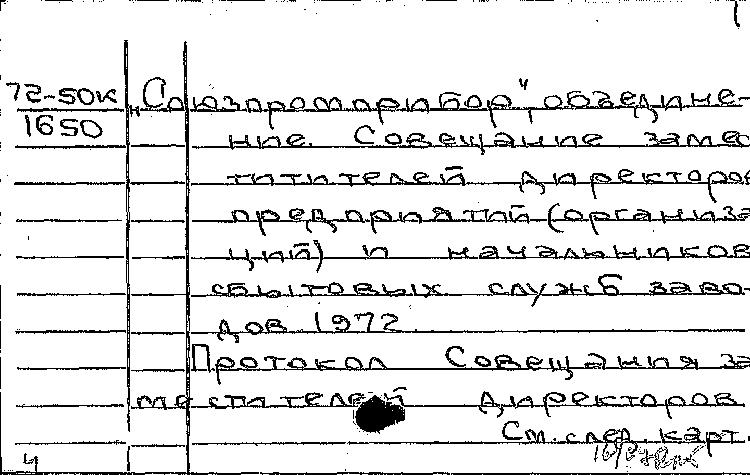 72-50К
1650
„Союзпромприбор", объедине-
ние. Совещание замес
тителей директоров
предприятий (организа
ций) и начальников
сбытовых служб заво-
дов 1972.
Протокол Совещания за
местителей директоров
См. след. карт.
4